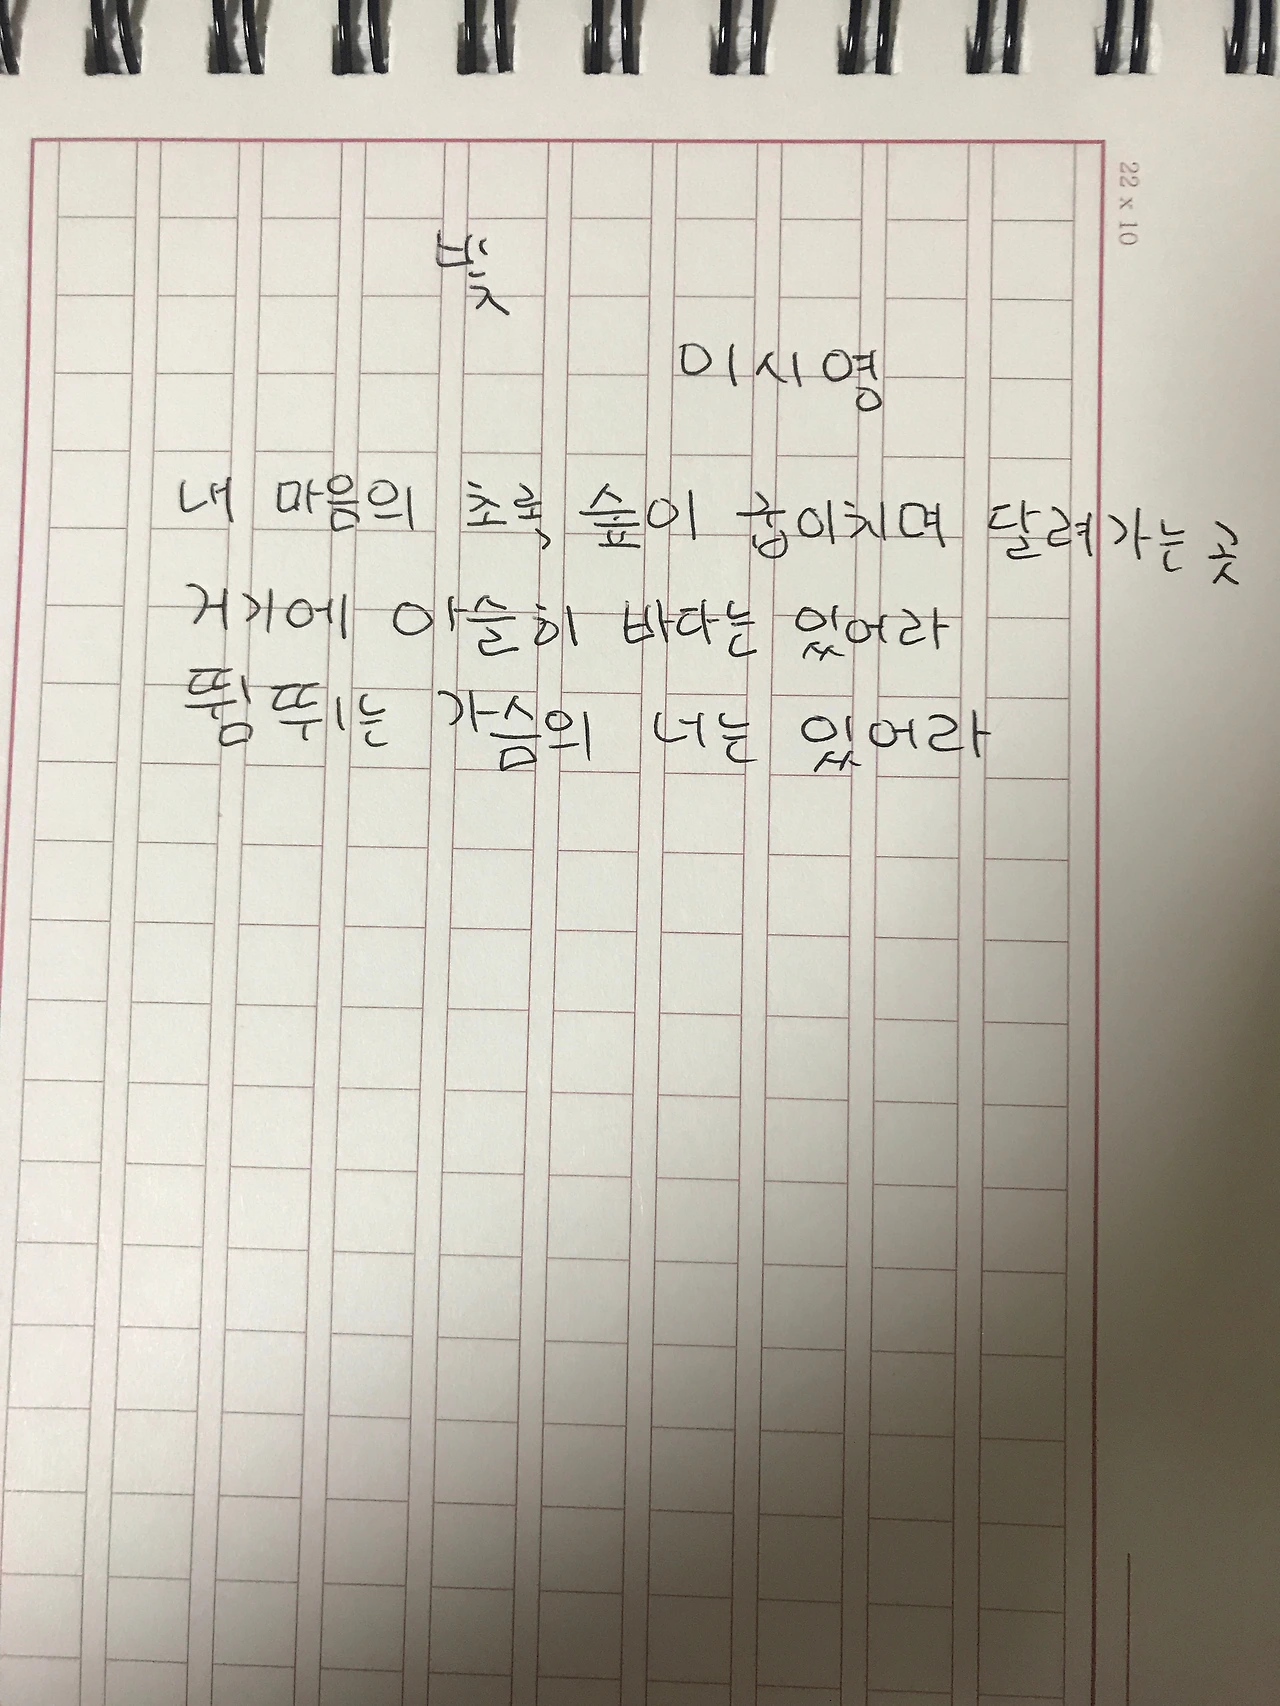 빛
이시영
내 마음의 초록 숲이 굽이치며 달려가는 곳
거기에 아슬히 바다는 있어라
뜀뛰는 가슴의 너는 있어라
22 x 10